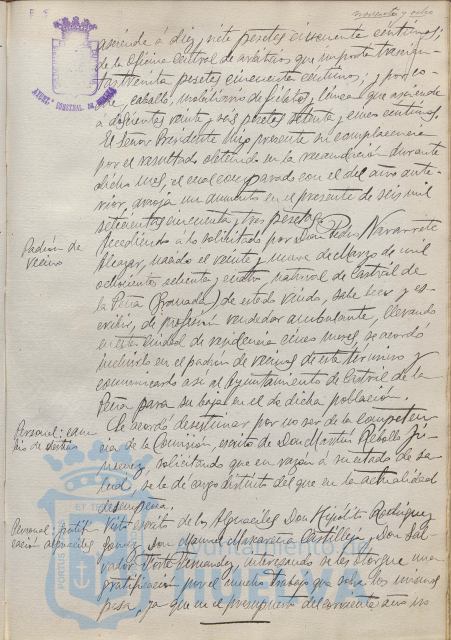 noventa y ocho
asciende á diez y siete pesetas cincuenta céntimos;
de la Oficina central de arbitrios que importa
treinta pesetas cincuenta céntimos; y por
caballo, de fielatos y línea que asciende
a doscientas veinte y seis pesetas setenta y cinco céntimos.
El Señor Presidente hizo presente su complacencia
por el resultado obtenido en la recaudación durante
dicho mes, el cual comparado con el del año ante-
rior, arroja un aumento en el presente de seis mil
setecientas cincuenta y tres pesetas.
Padrón de
Vecinos
Accediendo á lo solicitado por Don Pedro Navarrete
Alcazar, nacido el veinte y nueve de Marzo de mil
ochocientos setenta y cuatro, natural de Castril de
la Peña (Granada) de estado viudo, sabe leer y es-
cribir, de profesión vendedor ambulante, llevando
en esta ciudad de residencia cinco meses, se acordó
incluirlo en el padrón de vecinos de este término y
comunicarlo así al Ayuntamiento de Castril de la
Peña para su baja en el de dicha población.
Personal: cam-
bio de destino
Se acordó desestimar por no ser de la competen-
cia de la Comisión, escrito de Don Martín Rebollo Ji-
menez, solicitando que en razón á su estado de sa-
lud, se le dé cargo distinto del que en la actualidad
desempeña.
Personal: gratifi-
cación alguaciles
Visto escrito de los Alguaciles Don Hipólito Rodriguez
Don Manuel Castilleja y Don Sal-
vador Fernandez, interesando se les otorgue una
gratificación por el mucho trabajo que sobre los mismos
pesa, ya que en el presupuesto del corriente año no
AYUNT° CONSTNAL DE HUELVA
PORTUS
Ayuntamiento de
HUELVA